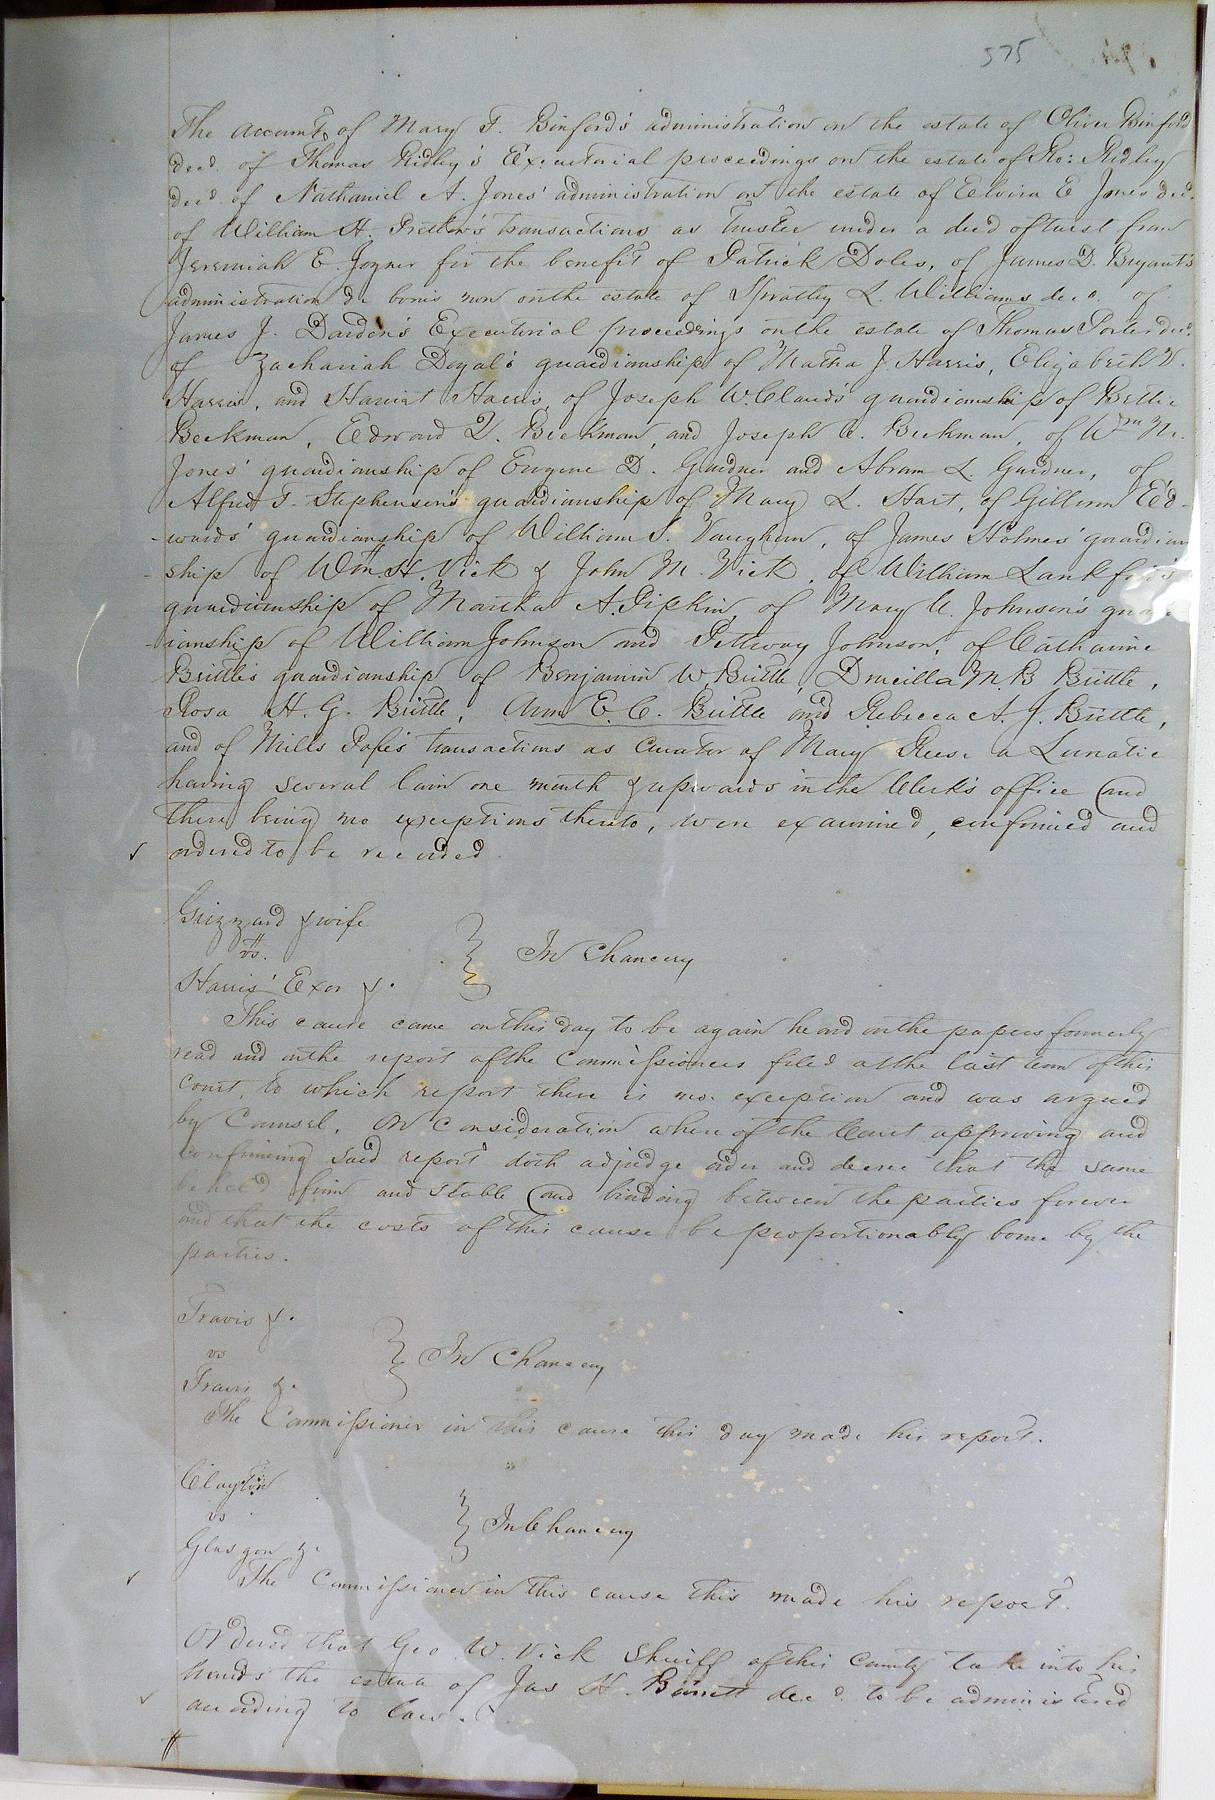 575
The accounts of Mary F. Binford's administration on the estate of Oliver Binford
decd. of Thomas Ridley's Executorial proceedings on the estate of Ro: Ridley
decd of Nathaniel A. Jones' administration on the estate of Elvira E Jones decd.
of William H. transactions as trustee under a deed of trust from
Jeremiah E. Joyner for the benefit of Patrick Doles, of James D. Bryant's
administration de bonis non on the estate of Spratley L. Williams decd. of
James J. Darden's Executorial proceedings on the estate of Thomas Porter decd.
of Zachariah Doyal's guardianship of Martha J Harris, Elizabeth V.
Harris, and Harriet Harris, of Joseph W. Claud's guardianship of Bettie
Beekman, Edward Beekman, and Joseph Beekman, of Wm N.
Jones' guardianship of Eugene D. Gardner and Abram L Gardner, of
Alfred T. Stephenson's guardianship of Mary L. Hart, of Gillium Ed-
-wards' guardianship of William S. Vaughan, of James Holmes' guardian
-ship of Wm. H. Vick & John M. Vick, of William Lankford's
guardianship of Martha A. Pipkin, of Mary U. Johnson's guar
-ianship of William Johnson and Pettway Johnson, of Catharine
Brittle's guardianship of Benjamin W Brittle, Drucilla M. B Brittle,
Rosa H. G. Brittle, Ann E. C. Brittle and Rebecca A. J. Brittle,
and of Mills Pope's transactions as Curator of Mary Reese a Lunatic
having several lain one month & upwards in the Clerk's office and
there being no exceptions thereto, were examined, confirmed and
ordered to be recorded.
Grizzard & wife
vs.
Harris' Exor &.
In Chancery
This cause came on this day to be again heard on the papers formerly
read and on the report of the Commissioners filed at the last term of this
court, to which report there is no exception and was argued
by Counsel. On Consideration whereof the Court approving and
confirming said report doth adjudge order and decree that the same
be held firm and stable and binding between the parties forever
and that the costs of this cause be proportionably borne by the
parties.
Travis &.
vs
Travis &.
In Chancery
The Commissioner in this cause this day made his report.
Clayton
vs
Glasgow &.
In Chancery
The Commissioner in this cause this made his report.
Ordered that Geo. W. Vick Sheriff of this County take into his
hands the estate of Jas H. Barrett decd. to be administered
according to law.